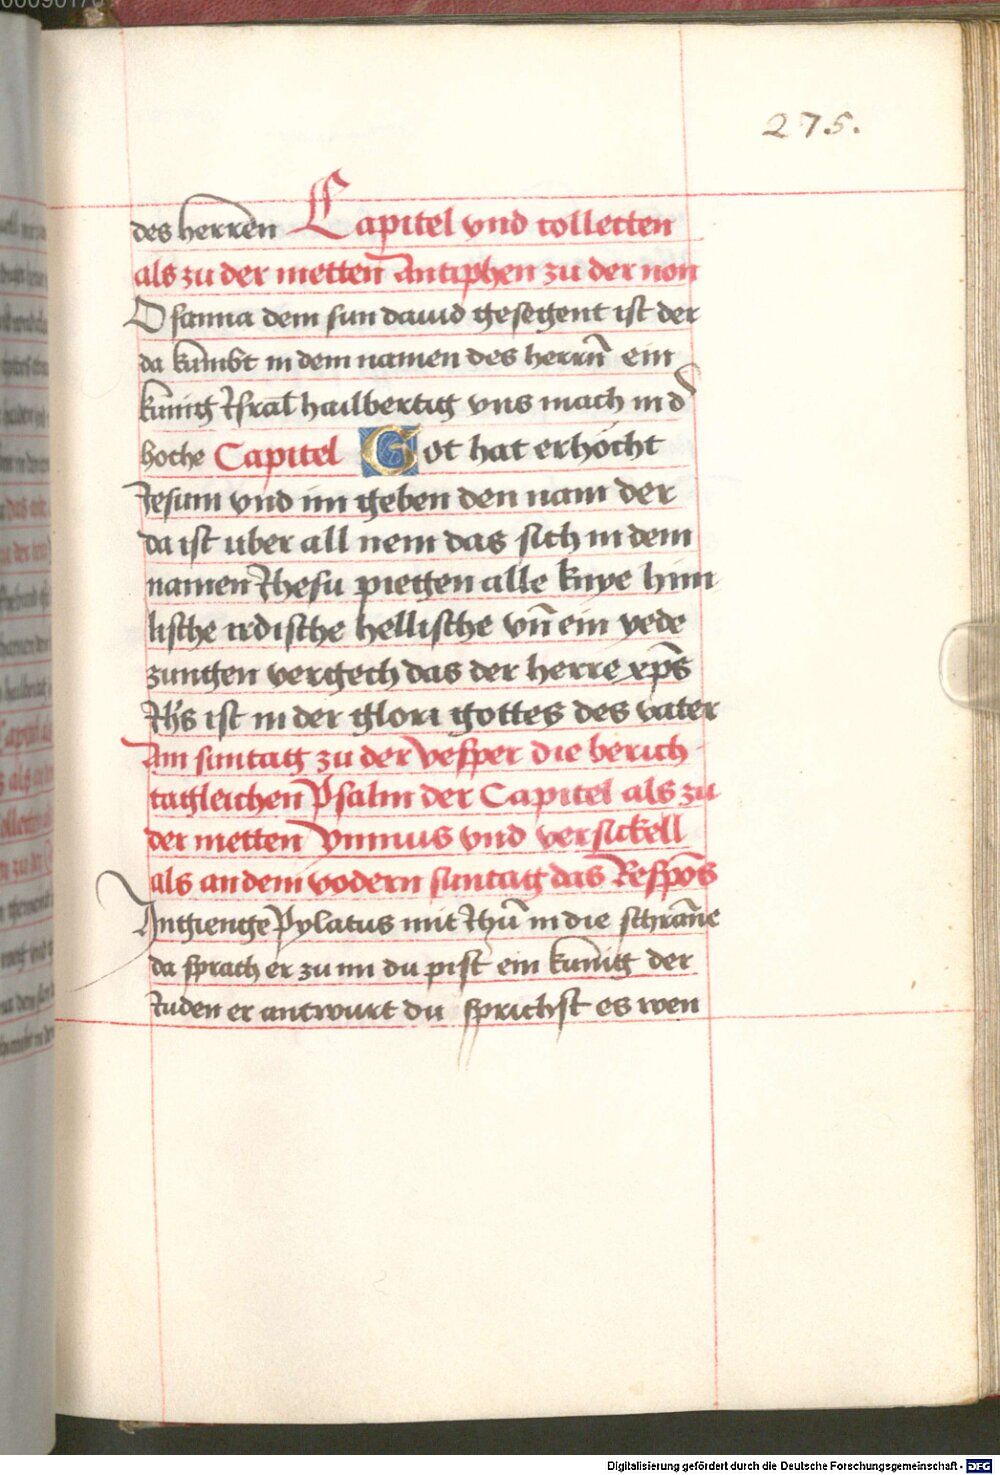 275.
des herren Capitel vnd collecten
als zu der metten Antiphen zu der non
Osanna dem sun dauid gesegent ist der
da kumbt in dem namen des herrn̄ ein
kunig Isral̄ hailbertig vns mach in d̕
hoche Capitel Got hat erhocht
Jesum vnd im geben den nam der
da ist uber all nem das sich in dem
namen Jhesu piegen alle knye him
lische irdische hellische vn̄ ein yede
zungen vergech das der herre xp̄s
Jh̄s ist in der glori gottes des vater
Am suntag zu der vesper die berich
tagleichen Psalm der Capitel als zu
der metten Ymnus vnd versickell
als an dem vodern suntag das Resp̄os
Ingienge Pylatus mit Jhū in die schran̄e
da sprach er zu im du pist ein kunig der
Juden er antwurt du sprichst es wen
Digitalisierung gefördert durch die Deutsche Forschungsgemeinschaft - DFG